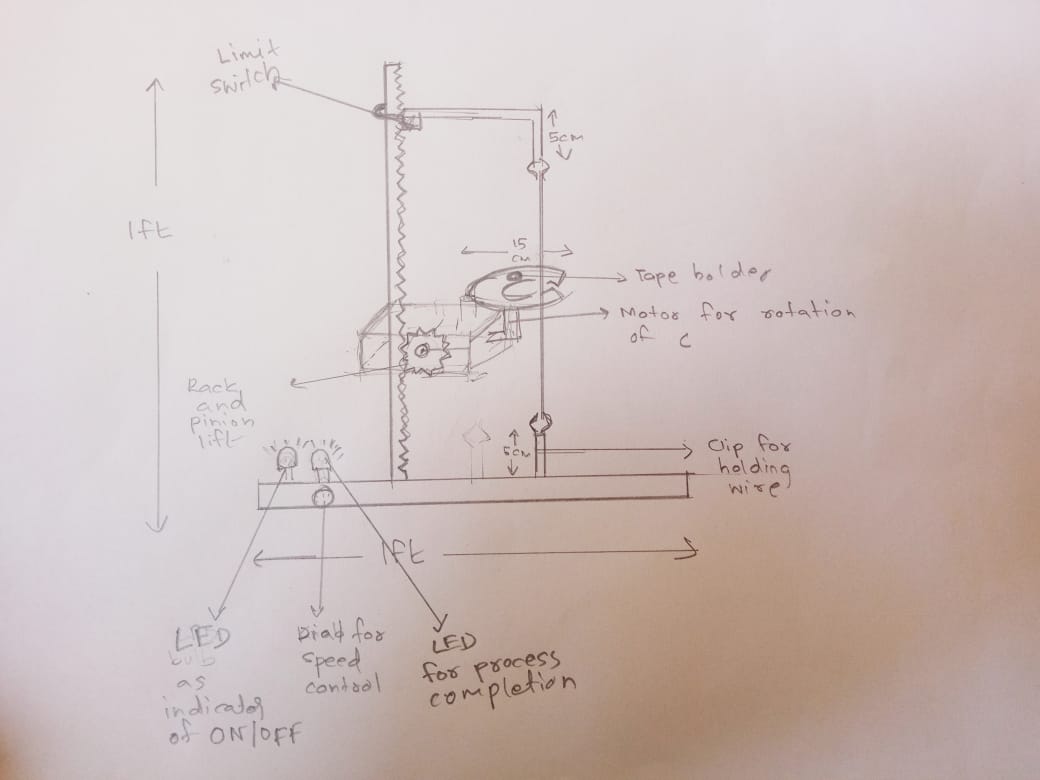 Limit
switch
5cm
1ft
15
cm
Tape holder
Motor for rotation
of C
Rack
and
pinion
lift
5cm
Clip for
holding
wire
1ft
LED
bulb
as
indicator
of ON/OFF
Dial for
speed
control
LED
for process
completion